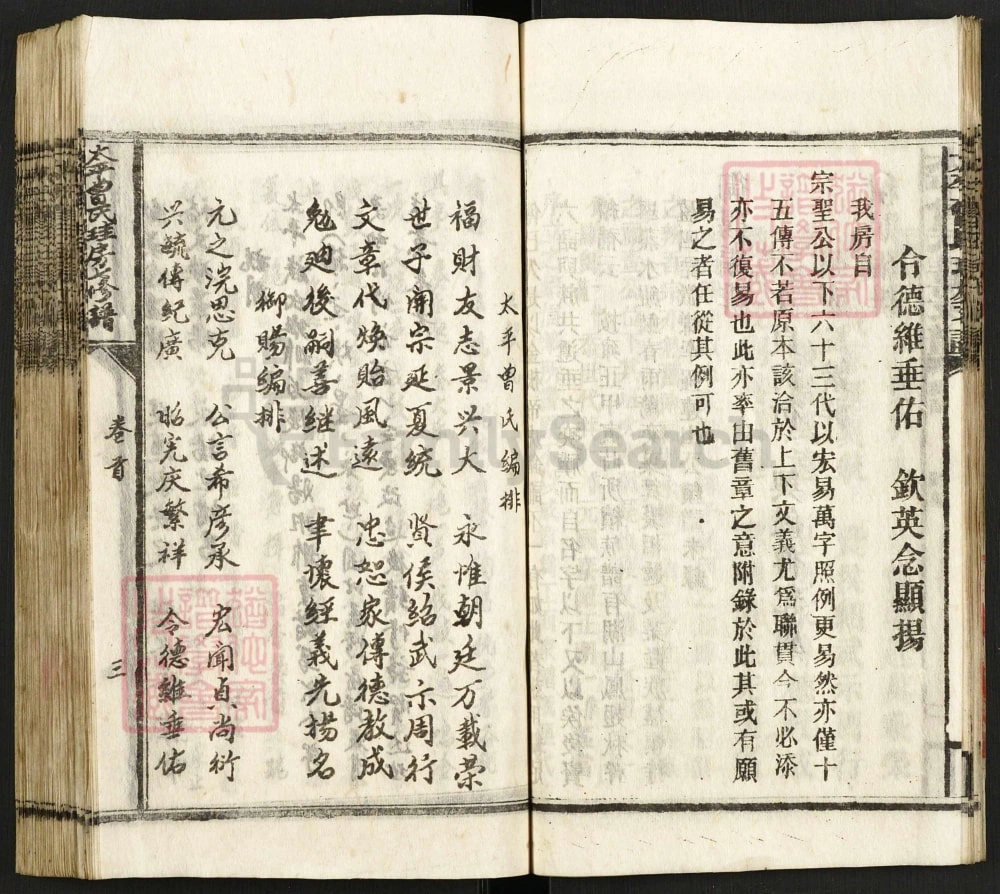 合德維垂佑　欽英念顯揚
我房自
宗聖公以下六十三代以宏易萬字照例更易然亦僅十
五傳不若原本該洽於上下文義尤爲聯貫今不必添
亦不復易也此亦率由舊章之意附錄於此其或有願
易之者任從其例可也
太平曾氏編排
福財友志景兴大　永惟朝廷万載荣
世子開宗延夏統　賢侯紹武示周行
文章代煥貽風遠　忠恕家傳德教成
勉廸後嗣善继述　聿懷經義先揚名
御賜編排
元之浣思克　公言希彦承　宏聞貞尚衍
兴毓傳紀廣　昭宪庆繁祥　令德維垂佑
卷首　三
太平曾氏珪房三修譜
FamilySearch